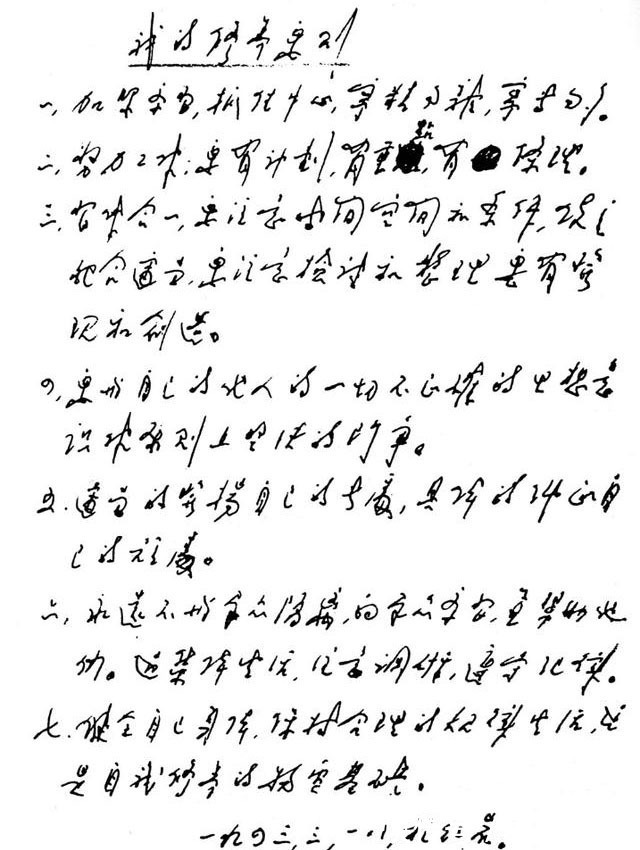 我的修养要则
一、加紧学习,抓住中心,宁精勿杂,宁专勿多。
二、努力工作,要有计划,有重点,有条理。
三、习作合一,要注意时间空间和条件,使之
配合适当,要注意检讨和整理,要有发
现和创造。
四、要与自己的他人的一切不正确的思想意
识作原则上坚决的斗争。
五、适当的发扬自己的长处,具体的纠正自
己的短处。
六、永远不与群众隔离,向群众学习,并帮助他
们。过集体生活,注意调研,遵守纪律。
七、健全自己身体,保持合理的规律生活,这
是自我修养的物质基础。
一九四三,三,一八,